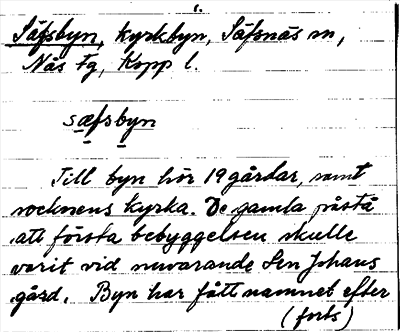 1.
Säfsbyn, kyrkbyn, Säfsnäs sn,
Nås Fg, Kopp l.
sæfsbyn
Till byn hör 19 gårdar, samt
socknens kyrka. De gamla påstå
att första bebyggelsen skulle
varit vid nuvarande Sen Johans
gård. Byn har fått namnet efter
(forts)